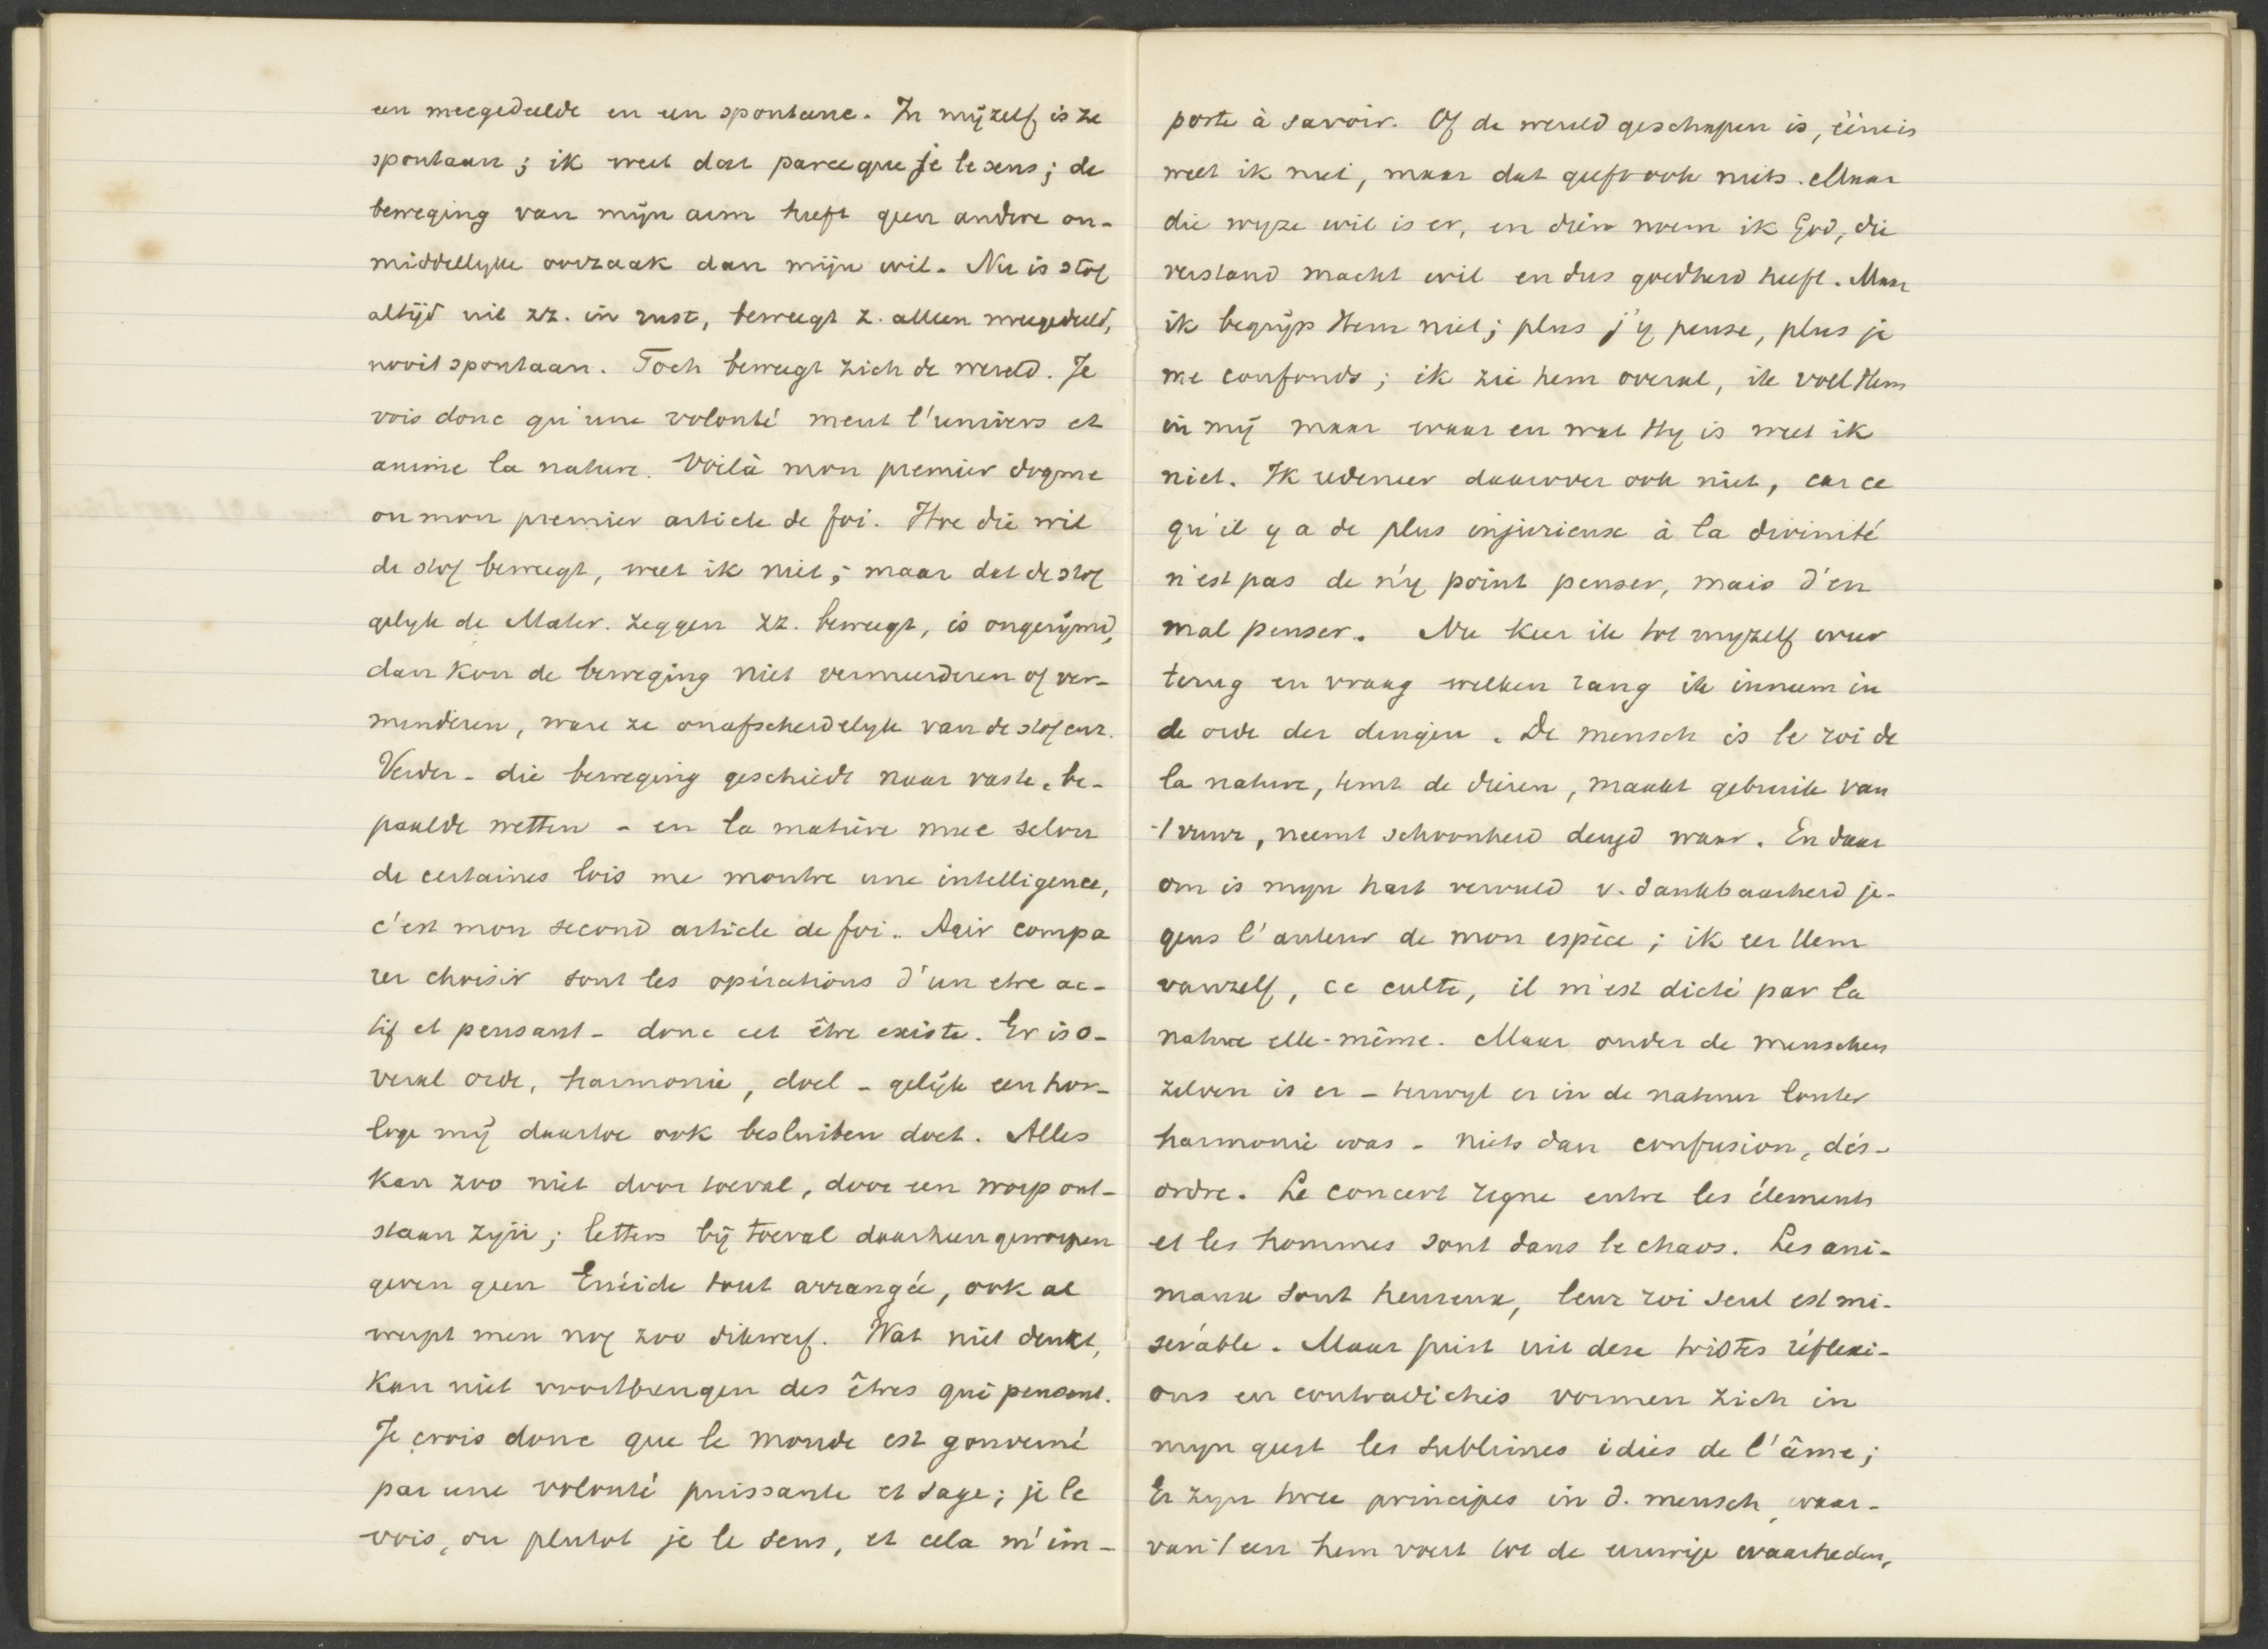 een meegedeelde en een spontane. In mijzelf is ze
spontaan; ik weet dat parceque je le sens; de
beweging van mijn arm heeft geen andere on-
middellyke oorzaak dan mijn wil. Nu is stof
altijd uit zz. in rust, beweegt z. alleen meegedeeld,
nooit spontaan. Toch beweegt zich de wereld. Je
vois donc qu'une volonté meut l'univers et
anime la nature. Voilà mon premier dogme
ou mon premier article de foi. Hoe die wil
de stof beweegt, weet ik niet; maar dat de stof
gelyk de Mater. zeggen zz. beweegt, is ongerijmd,
dan kon de beweging niet vermeerderen of ver-
minderen, ware ze onafscheidelyk van de stof enz.
Verder - die beweging geschiedt naar vaste, be-
paalde wetten - en la matière mue selon
de certaines lois me montre une intelligence,
c'est mon second article de foi. Agir compa
rer choisir sont les opérations d'un etre ac-
tif et pensant - donc cet être existe. Er is o-
veral orde, harmonie, doel - gelijk een hor-
loge mij daartoe ook besluiten doet. Alles
kan zoo niet door toeval, door een worp ont-
staan zijn; letters bij toeval daarheen geworpen
geven geen Enéide tout arrangée, ook al
werpt men nog zoo dikwerf. Wat niet denkt,
kan niet voortbrengen des êtres qui pensent.
Je crois donc que le monde est gouverné
par une volonté puissante et sage; je le
vois, ou plutot je le sens, et cela m'im-
porte à savoir. Of de wereld geschapen is, één is
weet ik niet, maar dat geeft ook niets. Maar
die wyze wil is er, en dien noem ik God, die
verstand macht wil en dus goedheid heeft. Maar
ik begrijp Hem niet; plus j'y pense, plus je
me confonds; ik zie hem overal, ik voel Hem
in mij maar waar en wat Hy is weet ik
niet. Ik redeneer daarover ook niet, car ce
qu'il y a de plus injurieuse à la divinité
n'est pas de n'y point penser, mais d'en
mal penser. Nu keer ik tot myzelf weer
terug en vraag welken rang ik inneem in
de orde der dingen. De mensch is le roi de
la nature, temt de dieren, maakt gebruik van
't vuur, neemt schoonheid deugd waar. En daar
om is myn hart vervuld v. dankbaarheid je-
gens l'auteur de mon espèce; ik eer Hem
vanzelf, ce culte, il m'est dicté par la
nature elle-même. Maar onder de menschen
zelven is er - terwyl er in de natuur louter
harmonie was - niets dan confusion, dés-
ordre. Le concert regne entre les élements
et les hommes sont dans le chaos. Les ani-
maux sont heureux, leur roi seul est mi-
sérable. Maar juist uit deze tristes réflexi-
ons en contradicties vormen zich in
myn geest les sublimes idées de l'âme;
Er zyn twee principes in d. mensch, waar-
van 't een hem voert tot de eeuwige waarheden,